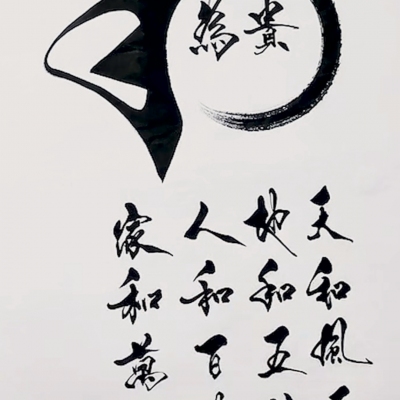 為貴
天和風
地和五
人和百
家和萬